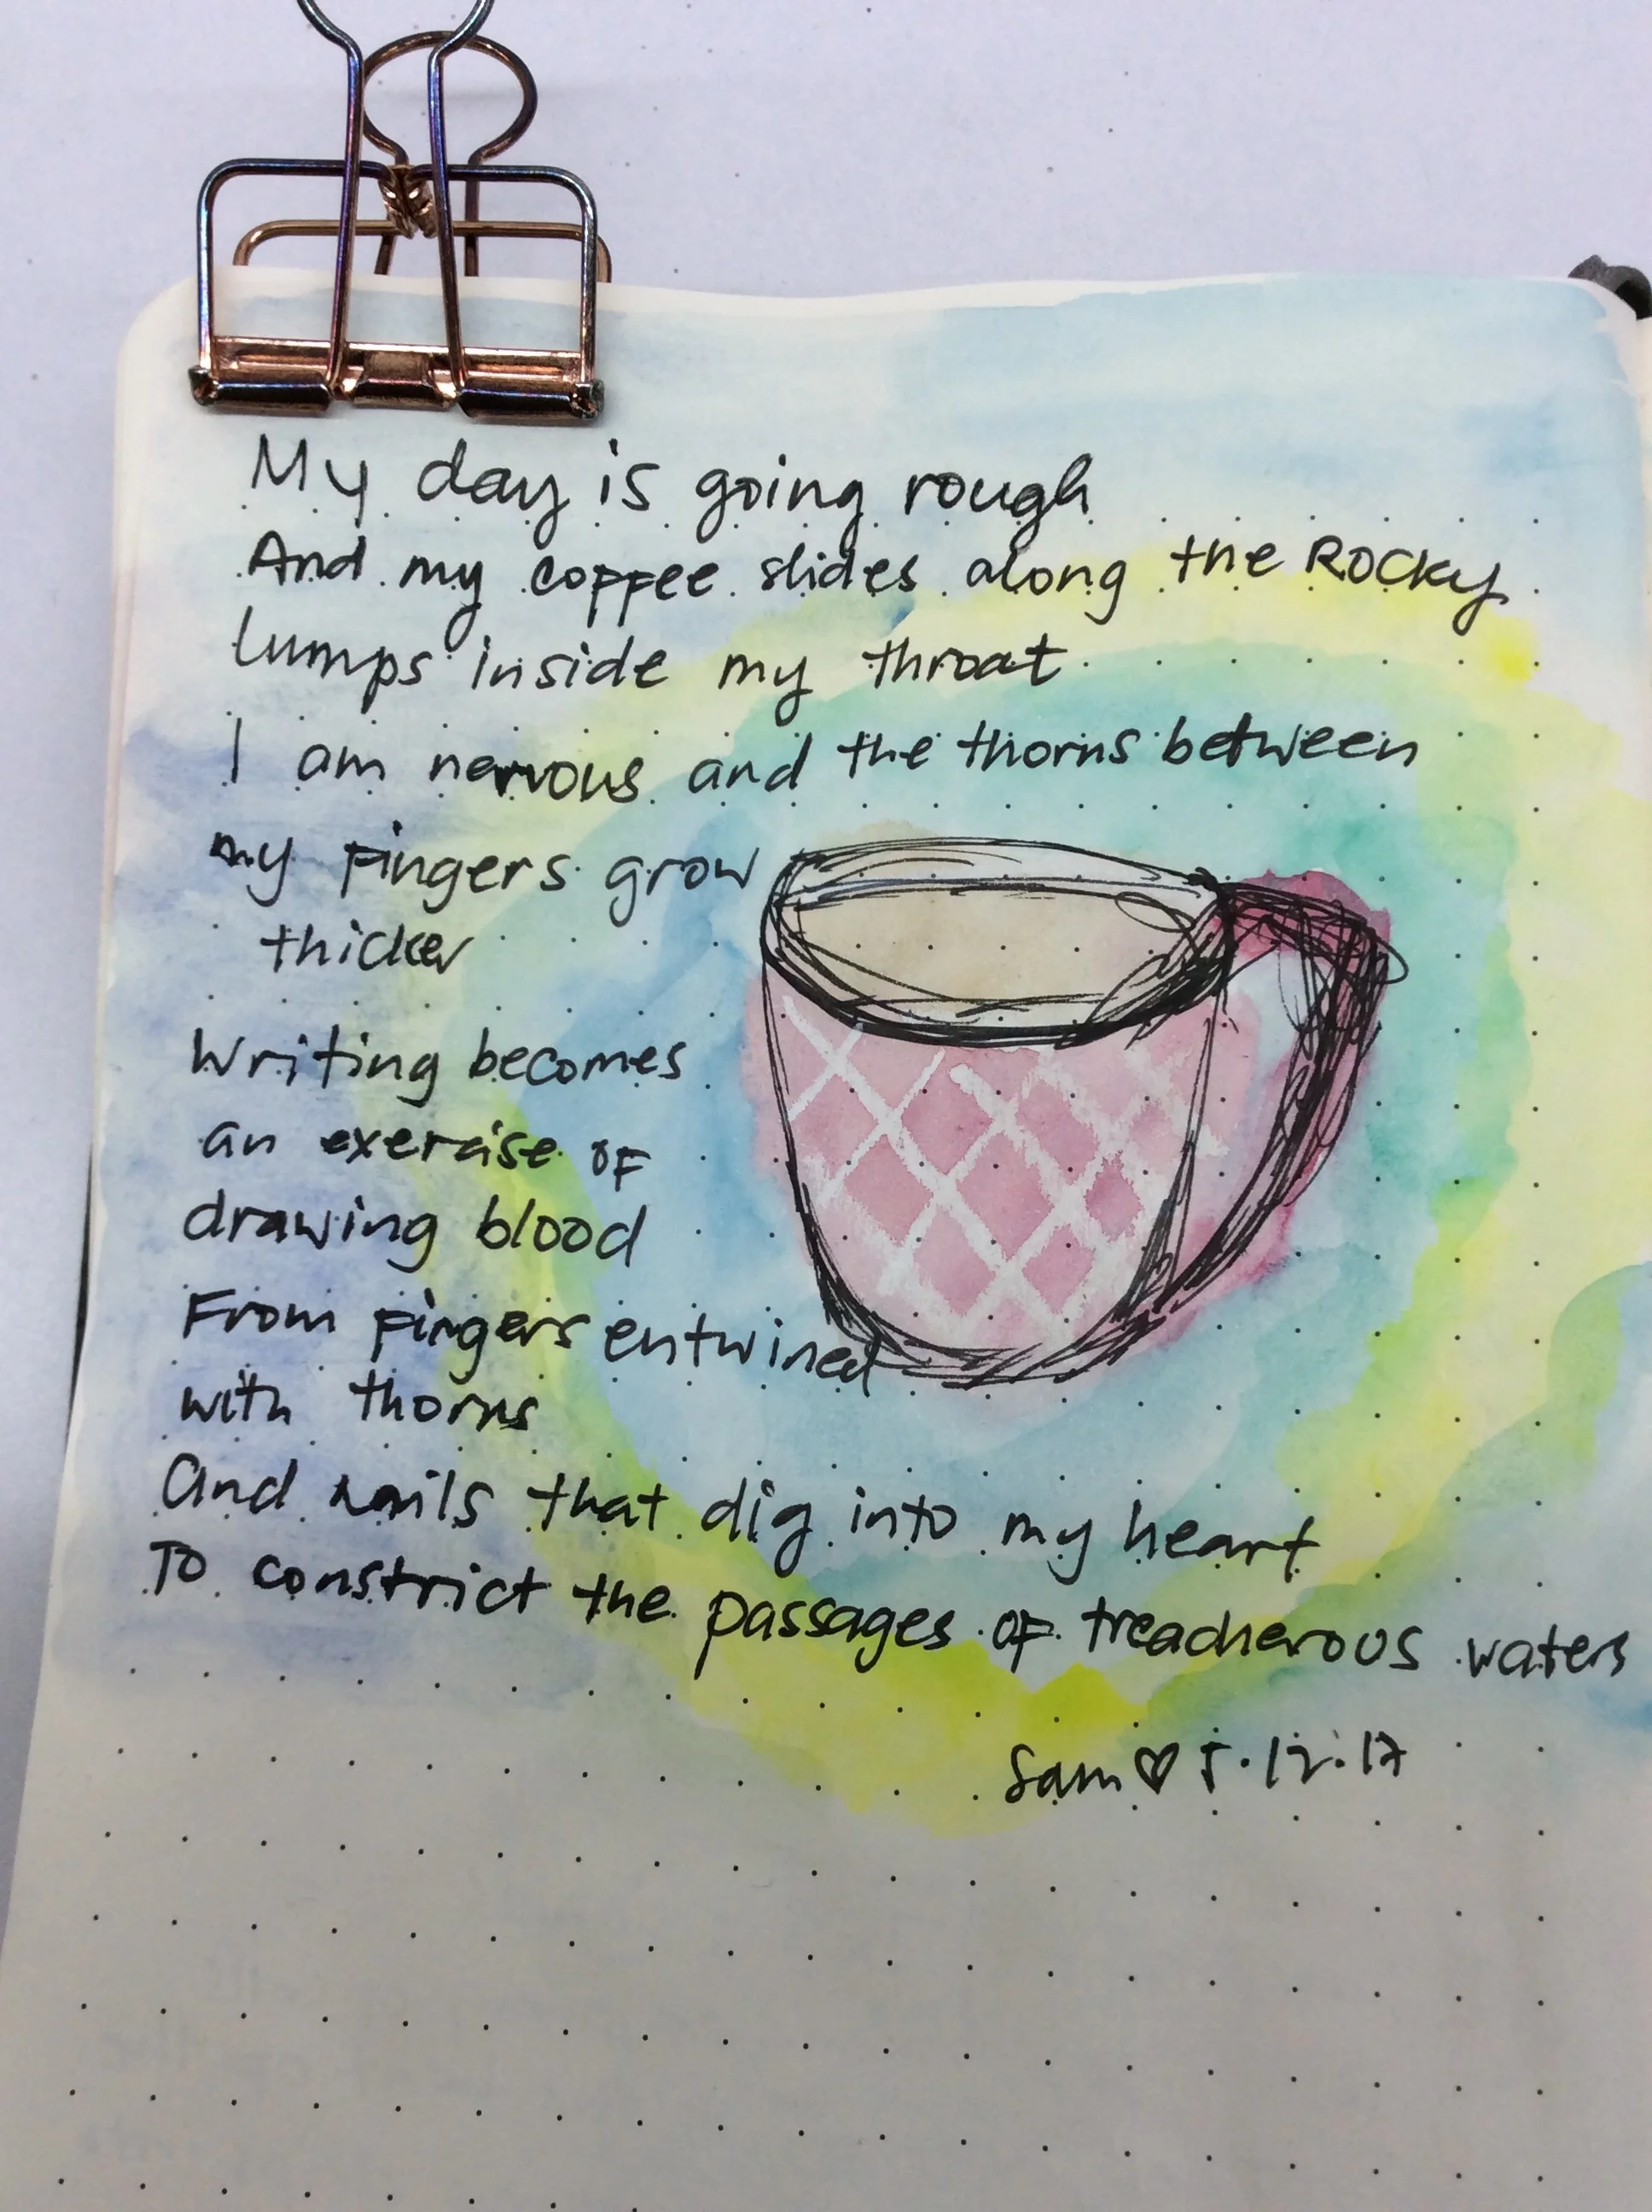 My day is going rough
And my coffee slides along the Rocky
lumps inside my throat
I am nervous and the thorns between
my fingers grow
thicker
Writing becomes
an exercise of
drawing blood
From fingers entwined
with thorns
And nails that dig into my heart
To constrict the passages of treacherous waters
Sam ♡ 5.12.17